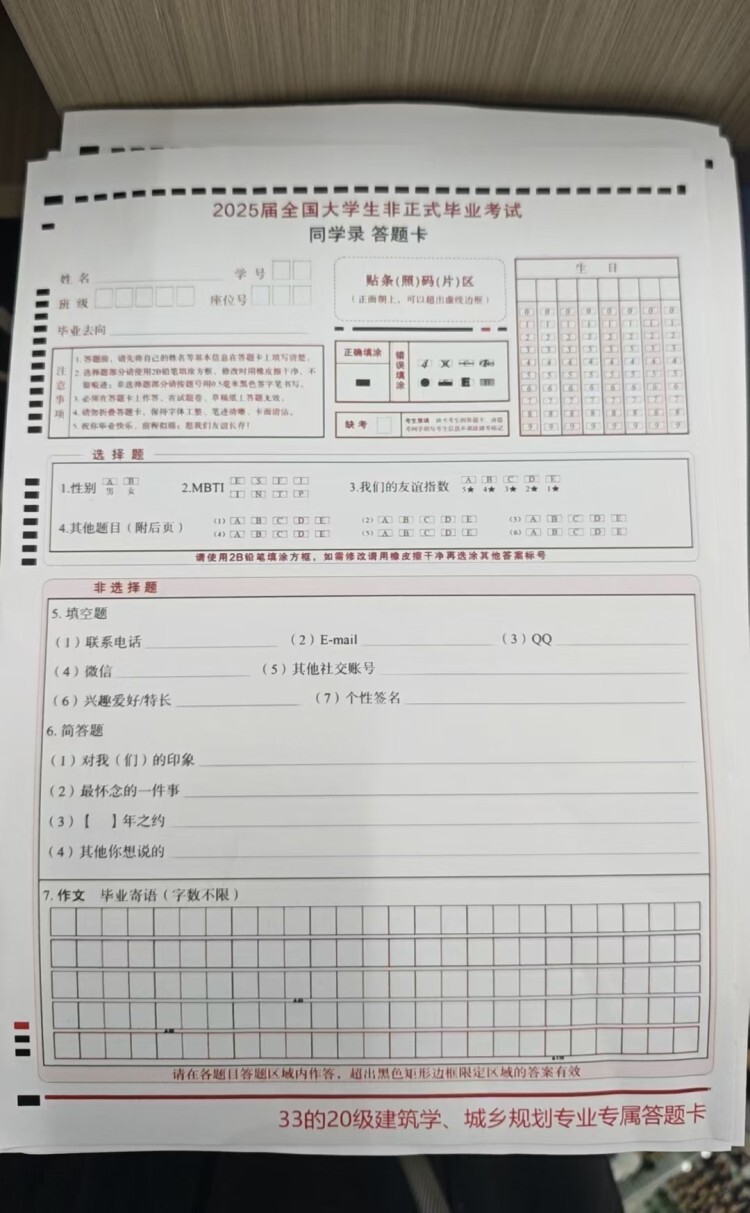 2025届全国大学生非正式毕业考试
同学录 答题卡
姓名 学号
班级 座位号
毕业去向
贴条(照)码(片)区
(正面朝上，可以超出虚线边框)
生 日
注意事项
1. 答题前，请先将自己的姓名等基本信息在答题卡上填写清楚。
2. 选择题部分请使用2B铅笔填涂方框，修改时用橡皮擦干净，不
留痕迹；非选择题部分请按题号用0.5毫米黑色签字笔书写。
3. 必须在答题卡上作答，在试题卷、草稿纸上答题无效。
4. 请勿折叠答题卡，保持字体工整、笔迹清晰、卡面清洁。
5. 祝你毕业快乐，前程似锦；愿我们友谊长存！
正确填涂
错误填涂
缺考
考生禁填
选择题
1.性别 A B 2.MBTI E S F J 3.我们的友谊指数 A B C D E
男 女 I N T P 5★ 4★ 3★ 2★ 1★
4.其他题目（附后页） (1) A B C D E (2) A B C D E (3) A B C D E
(4) A B C D E (5) A B C D E (6) A B C D E
请使用2B铅笔填涂方框，如需修改请用橡皮擦干净再选涂其他答案标号
非选择题
5. 填空题
（1）联系电话 （2）E-mail （3）QQ
（4）微信 （5）其他社交账号
（6）兴趣爱好/特长 （7）个性签名
6. 简答题
（1）对我（们）的印象
（2）最怀念的一件事
（3）【 】年之约
（4）其他你想说的
7. 作文 毕业寄语（字数不限）
请在各题目答题区域内作答，超出黑色矩形边框限定区域的答案有效
33的20级建筑学、城乡规划专业专属答题卡